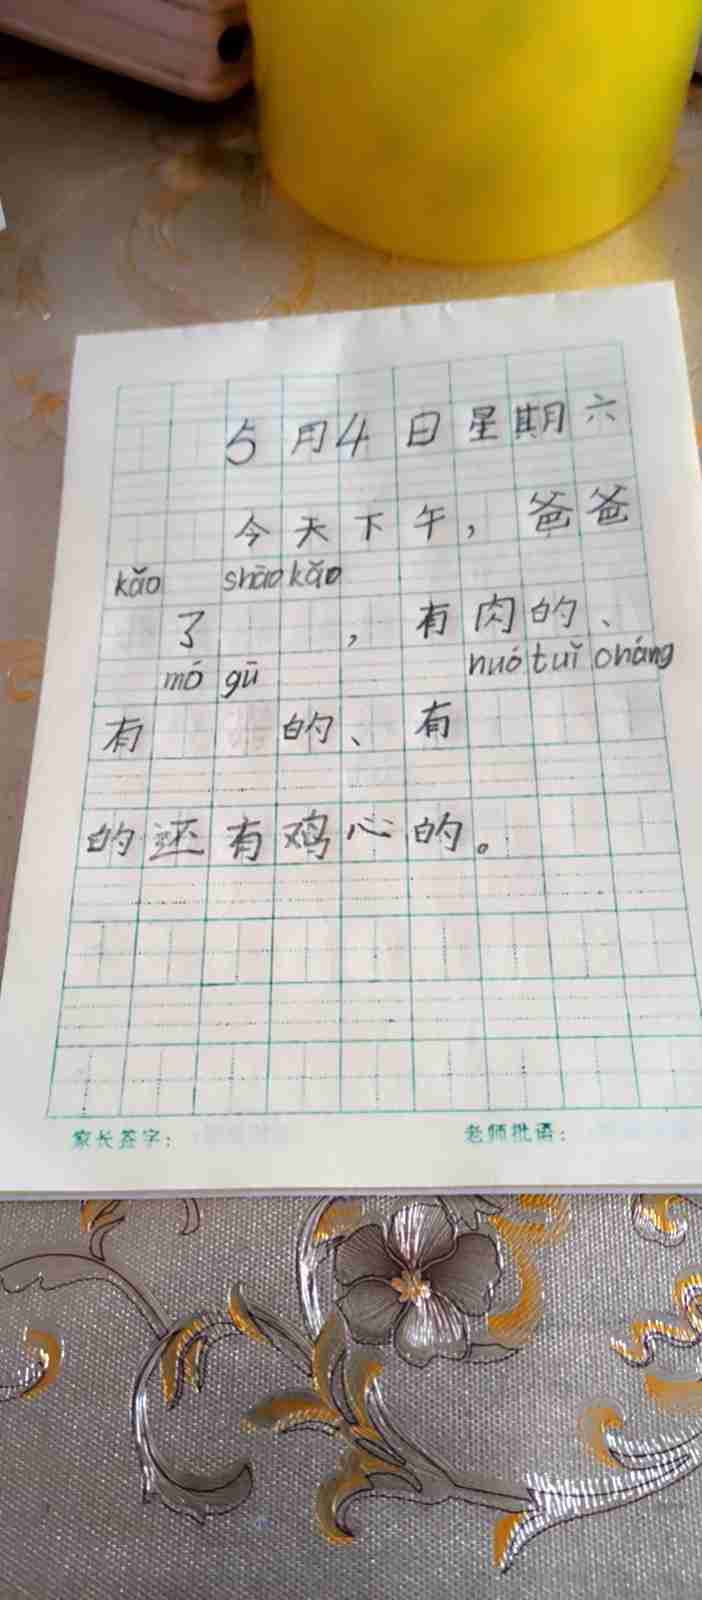 5月4日星期六
今天下午，爸爸
kǎo shāo kǎo
了 ，有肉的、
mó gū huǒ tuǐ cháng
有 的、有
的还有鸡心的。
家长签字： 老师批语：